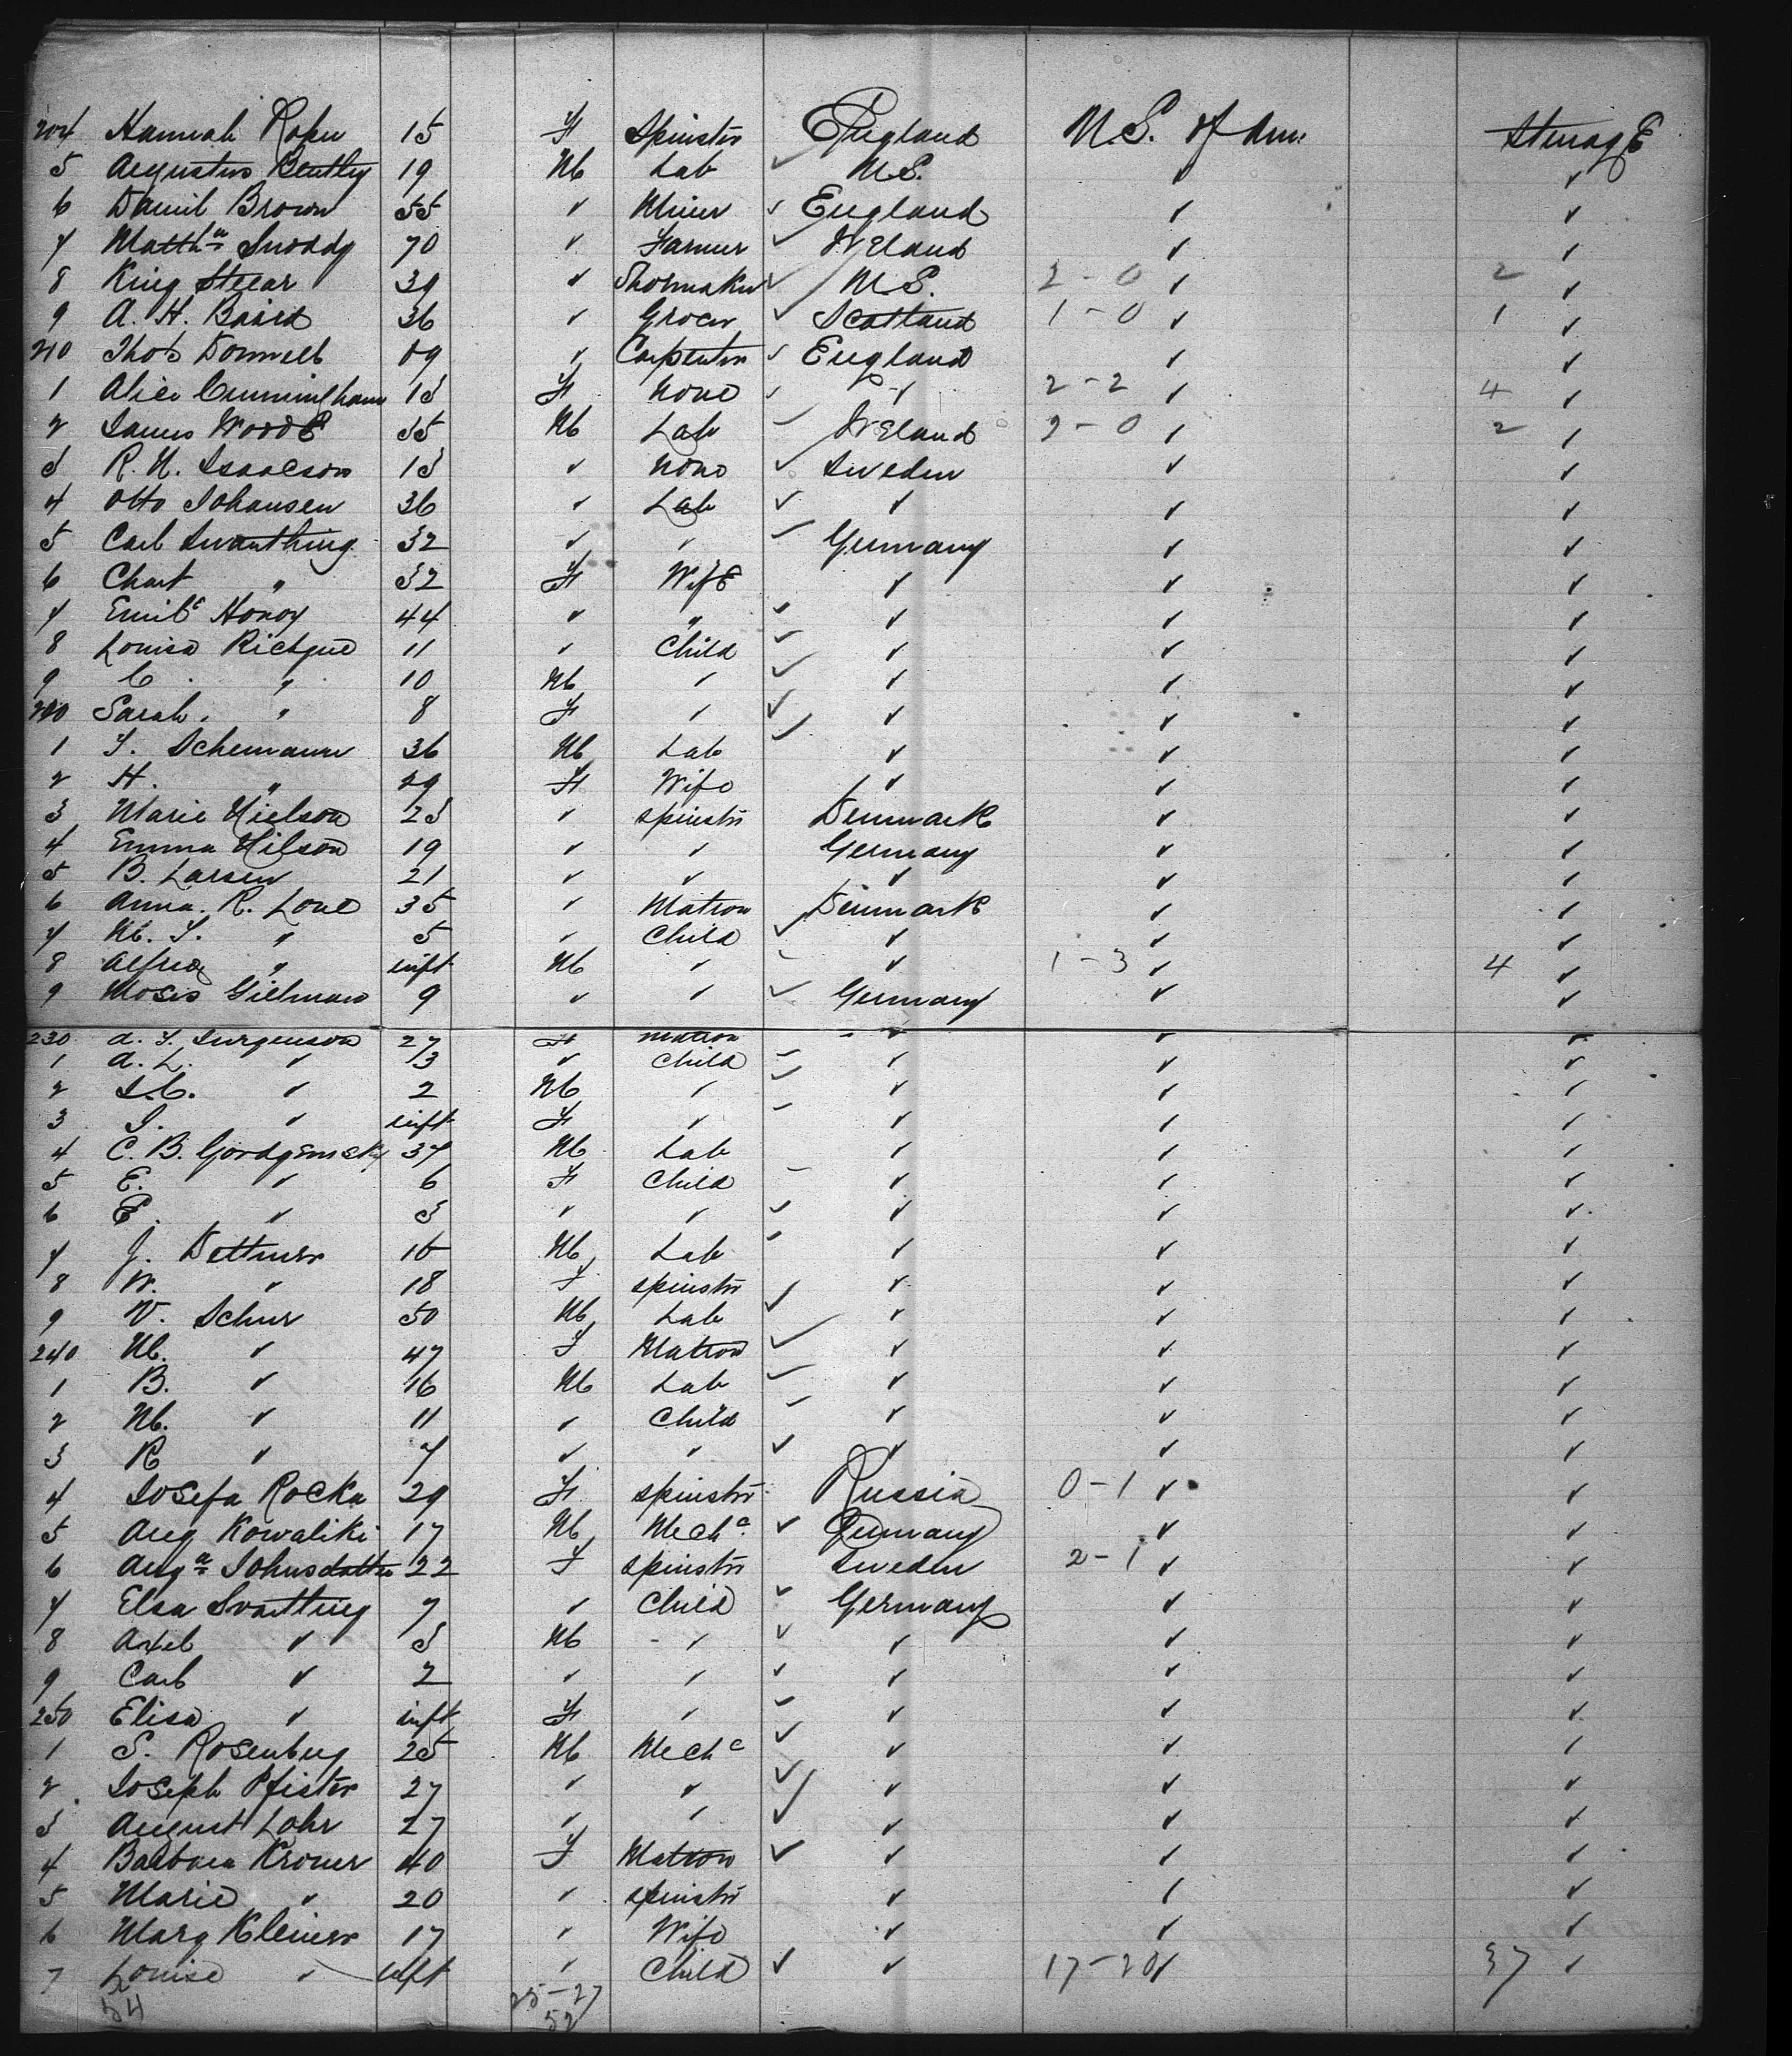 204 Hannah 15 F Spinstr England U.S. of Am: SteragE
5 Augustus Bentley 19 M Lab ✓ U.S. ✓ ✓
6 Daniel Brown 55 ✓ Miner ✓ England ✓ ✓
7 Matth Snoddy 70 ✓ Farmer ✓ IrEland ✓ ✓
8 King 39 ✓ Shoemaker ✓ U.S. 2-0 ✓ 2 ✓
9 A. H. Baird 36 ✓ Grocer ✓ Scotland 1-0 ✓ 1 ✓
210 Thos Donnell 19 ✓ Carpenter ✓ England ✓ ✓
1 Alice Cunningham 13 F None ✓ ✓ 2-2 ✓ 4 ✓
2 James WoodE 35 M Lab IrEland 2-0 ✓ 2 ✓
3 R. N. Isaacson 13 ✓ None ✓ Sweden ✓ ✓
4 Otto Johansen 36 ✓ Lab ✓ ✓ ✓ ✓
5 Carl 32 ✓ ✓ Germany ✓ ✓
6 " 32 F WifE ✓ ✓ ✓
7 44 ✓ " ✓ ✓ ✓ ✓
8 Louisa 11 ✓ Child ✓ ✓ ✓
9 C. " 10 M ✓ ✓ ✓ ✓ ✓
220 Sarah " 8 F ✓ ✓ ✓ ✓ ✓
1 Schemann 36 M Lab ✓ ✓ ✓
2 H. " 29 F Wife ✓ ✓ ✓
3 Marie Nielson 23 ✓ Spinstr Denmark ✓ ✓
4 Emma Nilson 19 ✓ ✓ Germany ✓ ✓
5 B. Larsen 21 ✓ ✓ ✓ ✓ ✓
6 Anna. R. Lone 35 ✓ Matron Denmark ✓ ✓
7 " 5 ✓ Child ✓ ✓ ✓ ✓
8 Alfred " inft M ✓ ✓ 1-3 ✓ 4 ✓
9 Moses Gillman 9 ✓ ✓ ✓ Germany ✓ ✓
230 Jurgenson 27 F Matron ✓ ✓ ✓
1 A. L. ✓ 3 ✓ Child ✓ ✓ ✓
2 ✓ 2 M ✓ ✓ ✓ ✓
3 ✓ inft F ✓ ✓ ✓ ✓
4 C. B. 37 M Lab ✓ ✓ ✓
5 E. ✓ 6 F Child ✓ ✓ ✓
6 ✓ 3 ✓ ✓ ✓ ✓ ✓ ✓
7 J. Dettmer 16 M Lab ✓ ✓ ✓
8 W. ✓ 18 F Spinstr ✓ ✓ ✓
9 Schur 50 M Lab ✓ ✓ ✓ ✓
240 M. ✓ 47 F Matron ✓ ✓ ✓ ✓
1 B. ✓ 16 M Lab ✓ ✓ ✓
2 M. ✓ 11 ✓ Child ✓ ✓ ✓
3 R ✓ 7 ✓ ✓ ✓ ✓ ✓ ✓
4 Josefa Rocka 29 F Spinstr Russia 0-1 ✓ ✓
5 Aug Kowaliki 17 M Mechc ✓ Germany ✓ ✓
6 Auga Johnsdatter 22 F Spinstr Sweden 2-1 ✓ ✓
7 Elsa 7 ✓ Child ✓ Germany ✓ ✓
8 Axel ✓ 3 M ✓ ✓ ✓ ✓ ✓
9 Carl ✓ 2 ✓ ✓ ✓ ✓ ✓ ✓
250 Elisa ✓ inft F ✓ ✓ ✓ ✓ ✓
1 S. Rosenberg 25 M Mechc ✓ ✓ ✓ ✓
2 Joseph Pfister 27 ✓ ✓ ✓ ✓ ✓ ✓
3 August Lohr 27 ✓ ✓ ✓ ✓ ✓ ✓
4 Barbara Kroner 40 F Matron ✓ ✓ ✓ ✓
5 Marie ✓ 20 ✓ Spinstr ✓ ✓ ✓
6 Marg Kleiner 17 ✓ Wife ✓ ✓ ✓
7 Louise ✓ inft ✓ Child ✓ ✓ 17-20 ✓ 37 ✓
54 25-27
52